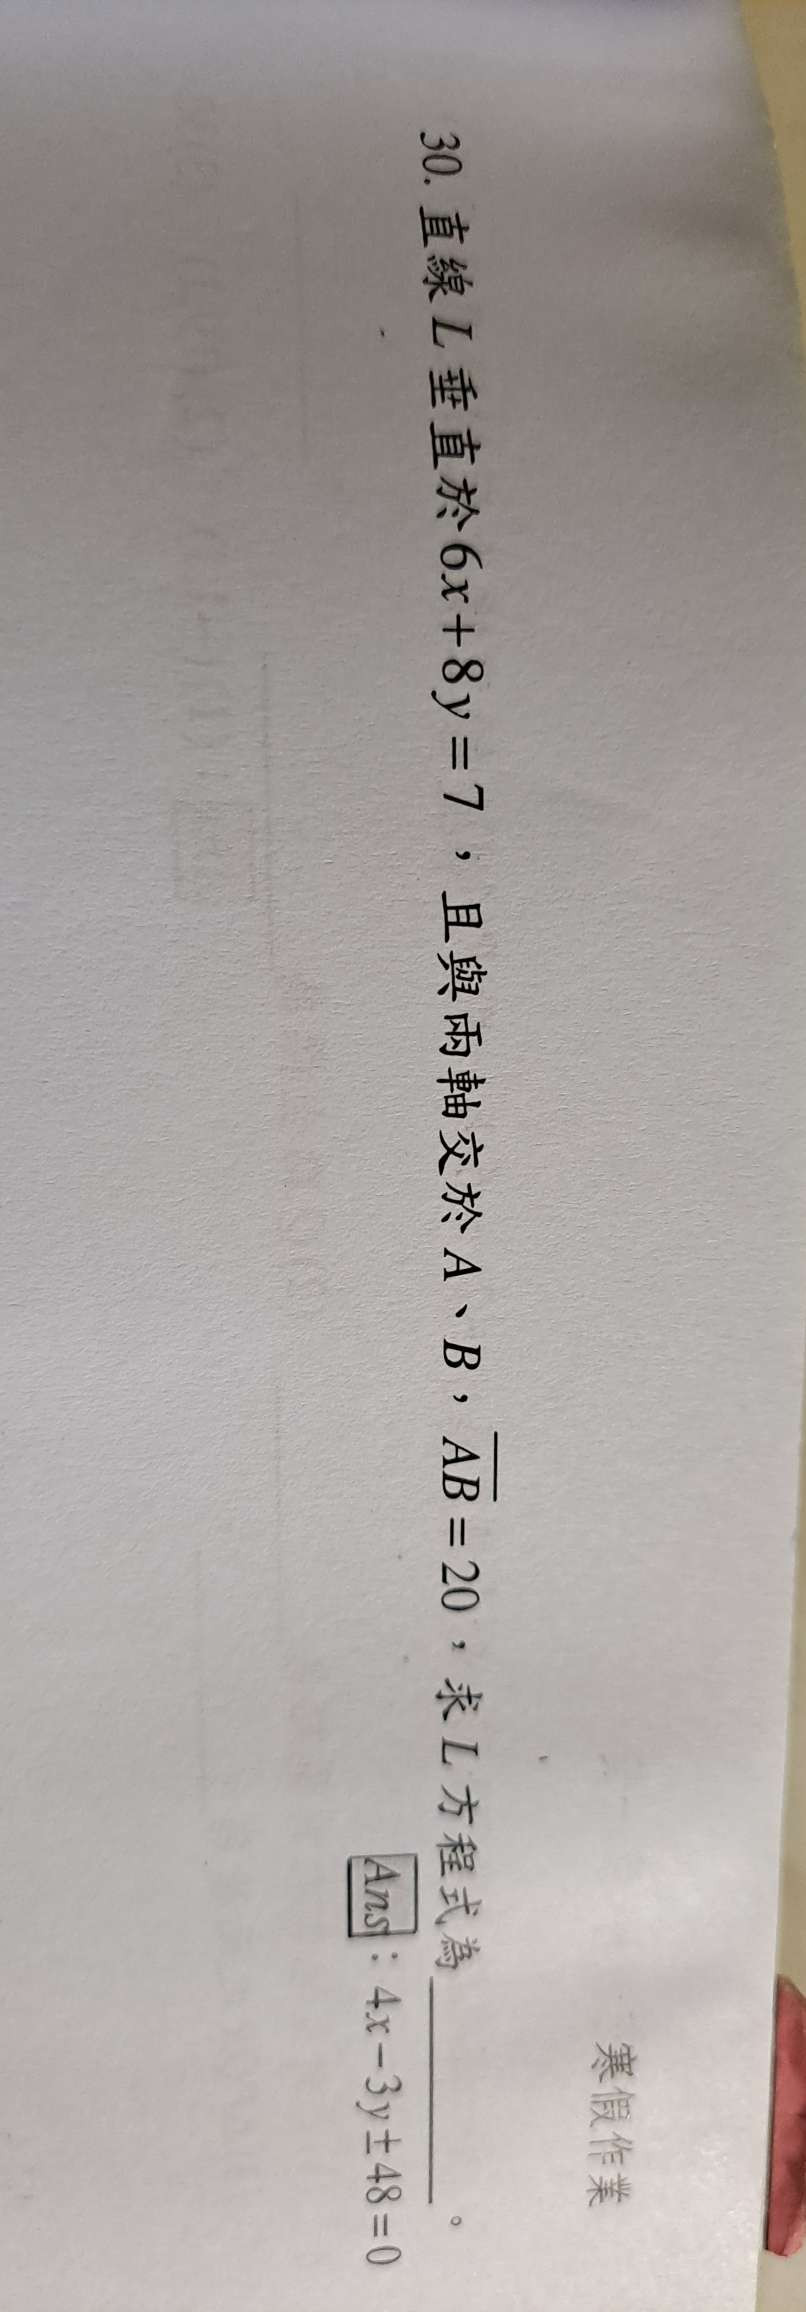 寒假作業
30. 直線 L 垂直於 6x+8y=7，且與兩軸交於 A、B，\overline{AB}=20，求 L 方程式為________。
Ans：4x−3y±48=0